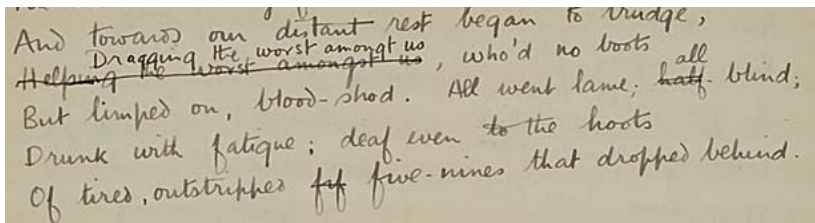 And towards our distant rest began to trudge,
Dragging the worst amongt us
Helping the worst amongst us, who'd no boots
all
But limped on, blood-shod. All went lame; half- blind;
Drunk with fatigue; deaf even to the hoots
Of tired, outstripped fif five-nines that dropped behind.